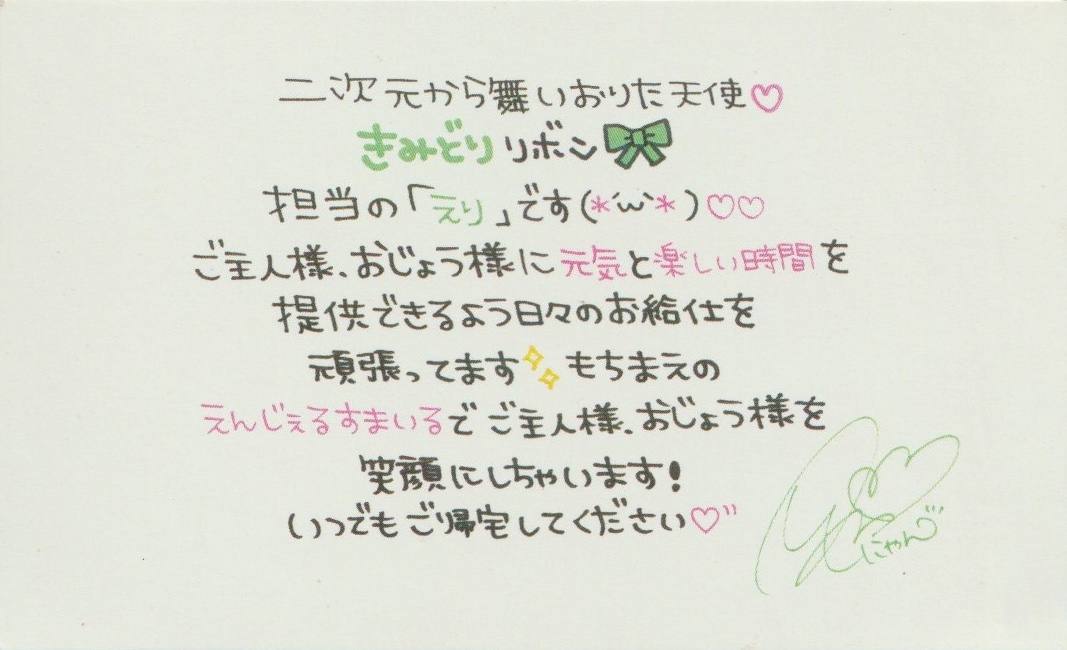 二次元から舞いおりた天使♡
きみどりリボン
担当の「えり」です(*´ω`*)♡♡
ご主人様、おじょう様に元気と楽しい時間を
提供できるよう日々のお給仕を
頑張ってます✨もちまえの
えんじぇるすまいるでご主人様、おじょう様を
笑顔にしちゃいます!
いつでもご帰宅してください♡"
にゃん